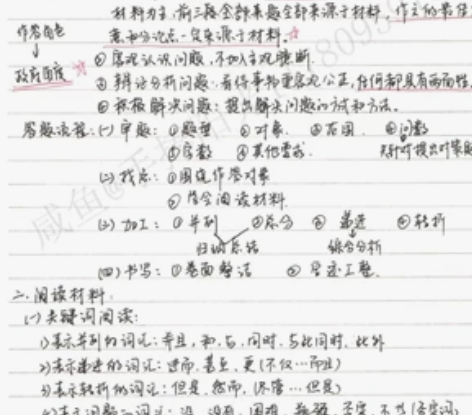 材料为主,前三题全部来题全部来源于材料,作文的最佳
作答角色
立意和分论点一定来源于材料
↓
政府角度
② 客观认识问题,不加入主观臆断.
③ 辩证分析问题:看待事物要客观公正,任何都具有两面性
④ 积极解决问题:提出解决问题的方式和方法。
答题流程:(一)审题:①题型 ②对象 ③范围 ④问数
⑤字数 ⑥其他要求.
(二)找点:①围绕作答对象
② 结合阅读材料
(三)加工:①并列 ②总分 ③递进 ④转折
归纳总结 综合分析
(四)书写:①卷面整洁 ②字迹工整.
二.阅读材料:
(一)关键词阅读:
1)表示并列的词汇:并且,和,与,同时,与此同时,此外
2)表示递进的词汇:进而,甚至,更(不仅…而且)
3)表示转折的词汇:但是,然而,(尽管…但是)
4)表示问题的词汇:没,没有,困难